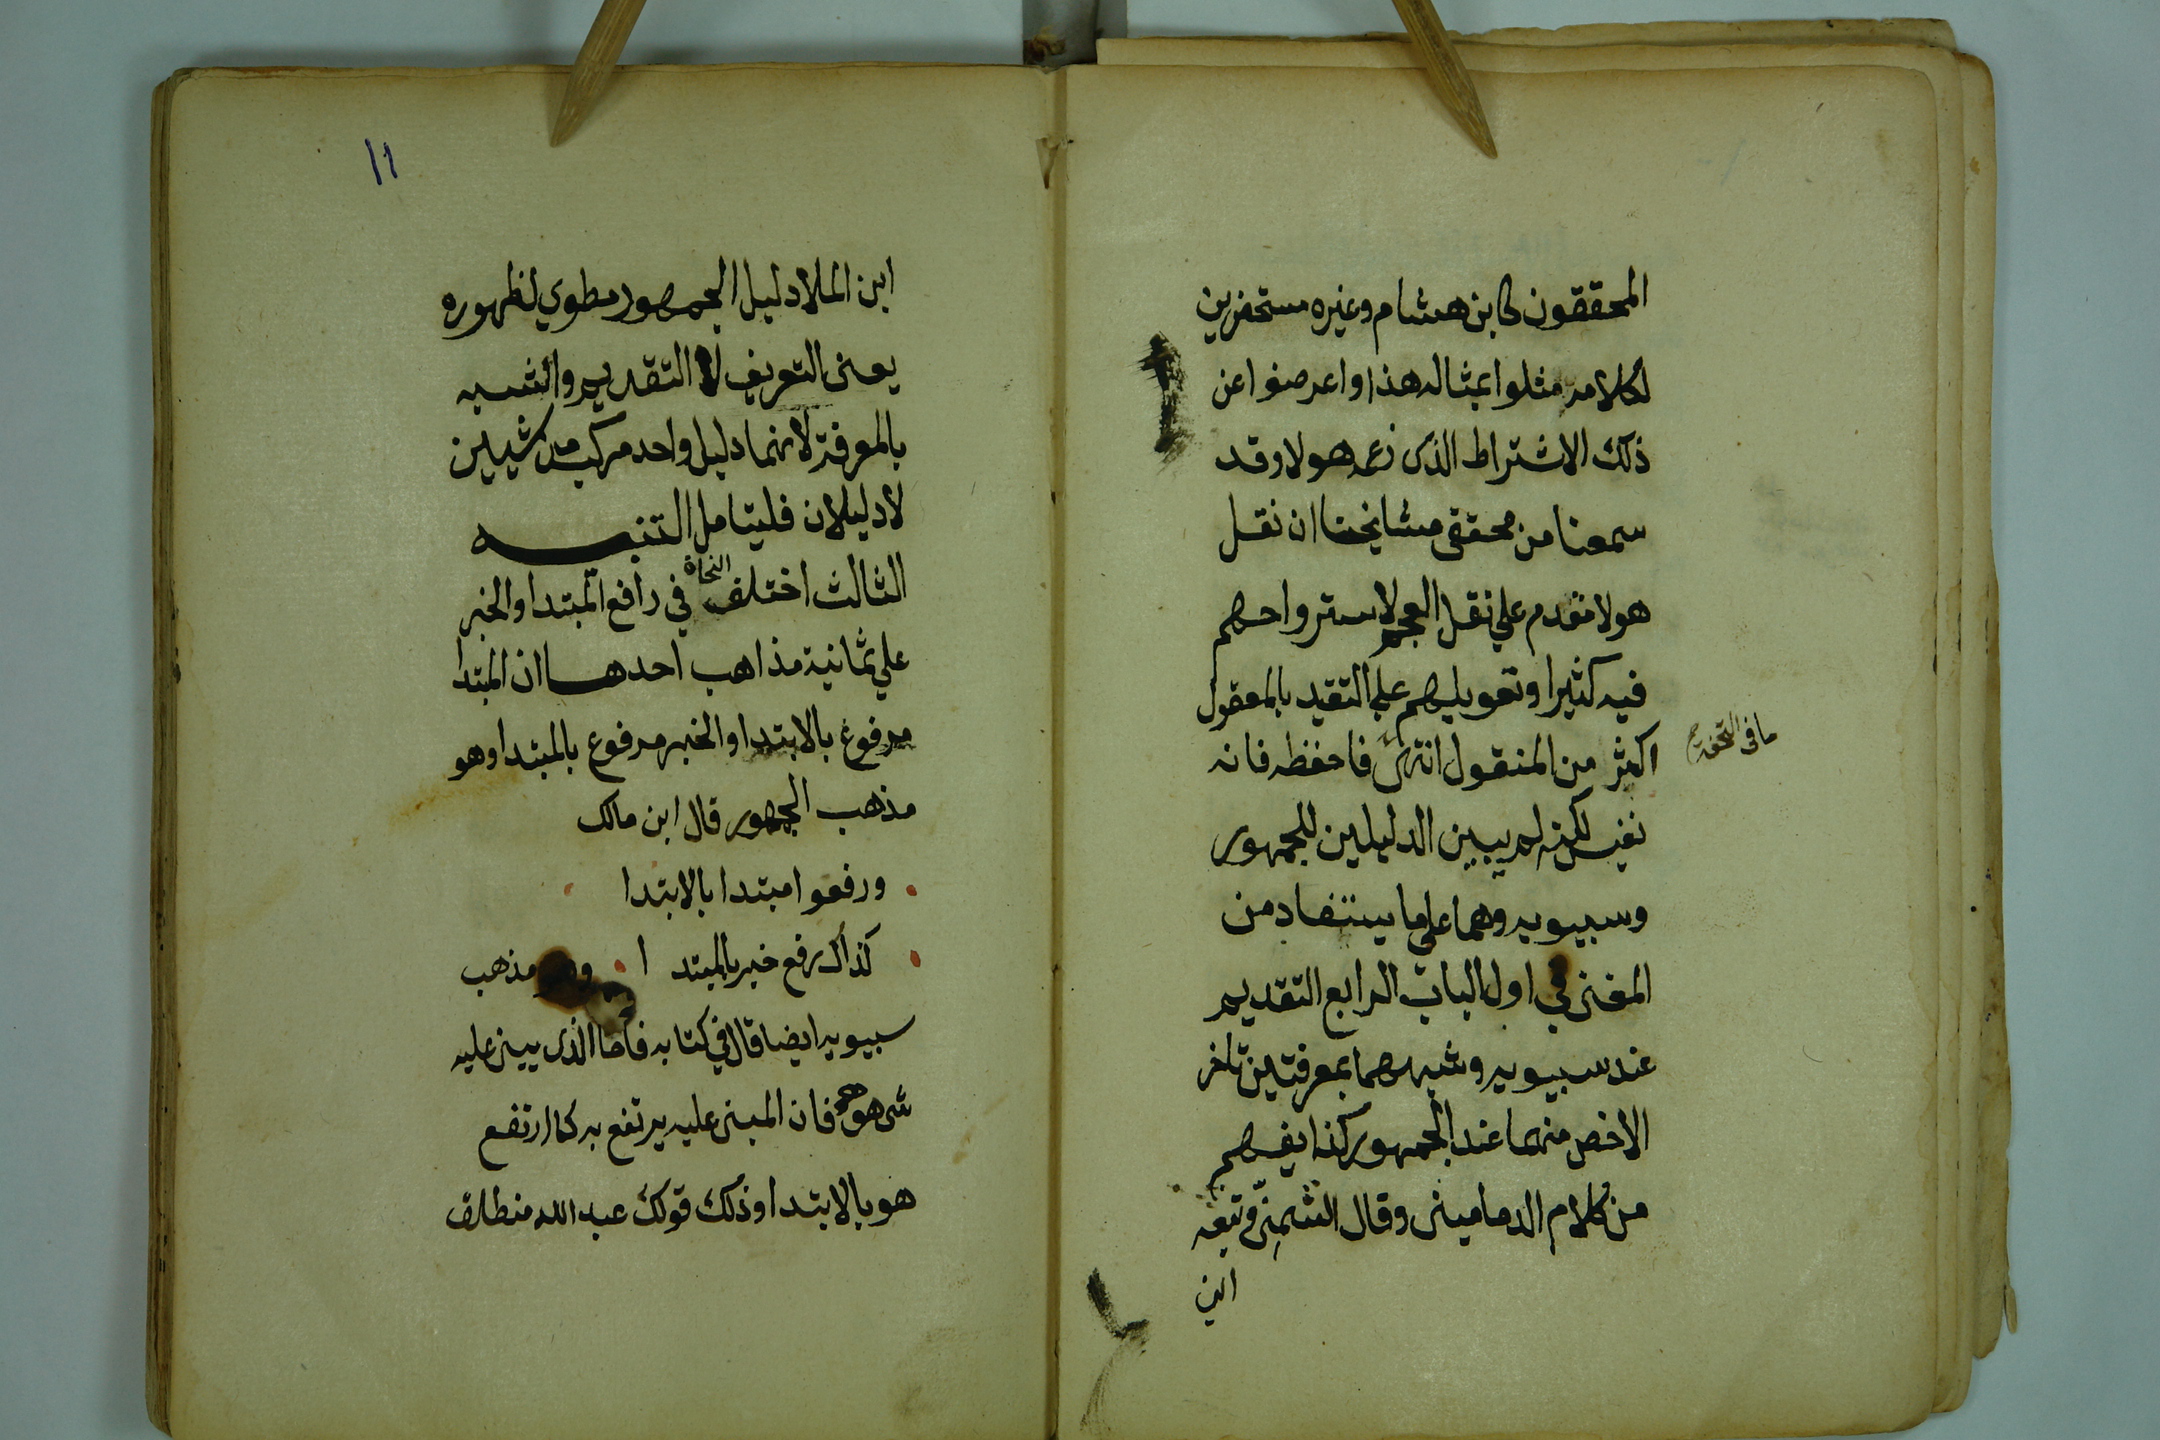 المحققون كابن هشام وغيره مستحضرين
لكلامه مثلوا بمثاله هذا واعرضوا عن
ذلك الاشتراط الذى زعمه هولا وقد
سمعنا من محققى مشايخنا ان نقل
هولا مقدم علي نقل العجم لاسترواحهم
فيه كثيرا وتعويلهم علي التقيد بالمعقول
اكثر من المنقول انتهى فاحفظه فانه
ما فى التحفة
نفيس لكنه لم يبين الدليلين للجمهور
وسيبويه وهما على ما يستفاد من
المغنى في اول الباب الرابع التقديم
عند سيبويه وشبههما بمعرفتين تاخر
الاخص منهما عند الجمهور كذا يفهم
من كلام الدمامينى وقال الشمنى وتبعه
ابن
١١
ابن الملا دليل الجمهور مطوي لظهوره
يعنى التعريف لا التقديم والتشبيه
بالمعرفة لانهما دليل واحد مركب من شيئين
لا دليلان فليتامل التنبيه
الثالث اختلف النحاة في رافع المبتدا والخبر
علي ثمانية مذاهب احدها ان المبتدا
مرفوع بالابتدا والخبر مرفوع بالمبتدا وهو
مذهب الجمهور قال ابن مالك
ورفعوا مبتدا بالابتدا
كذاك رفع خبر بالمبتدا مذهب
سيبويه ايضا قال في كتابه فاما الذى يبنى عليه
شى هو هو فان المبنى عليه يرتفع به كما ارتفع
هو بالابتدا وذلك قولك عبد الله منطلق